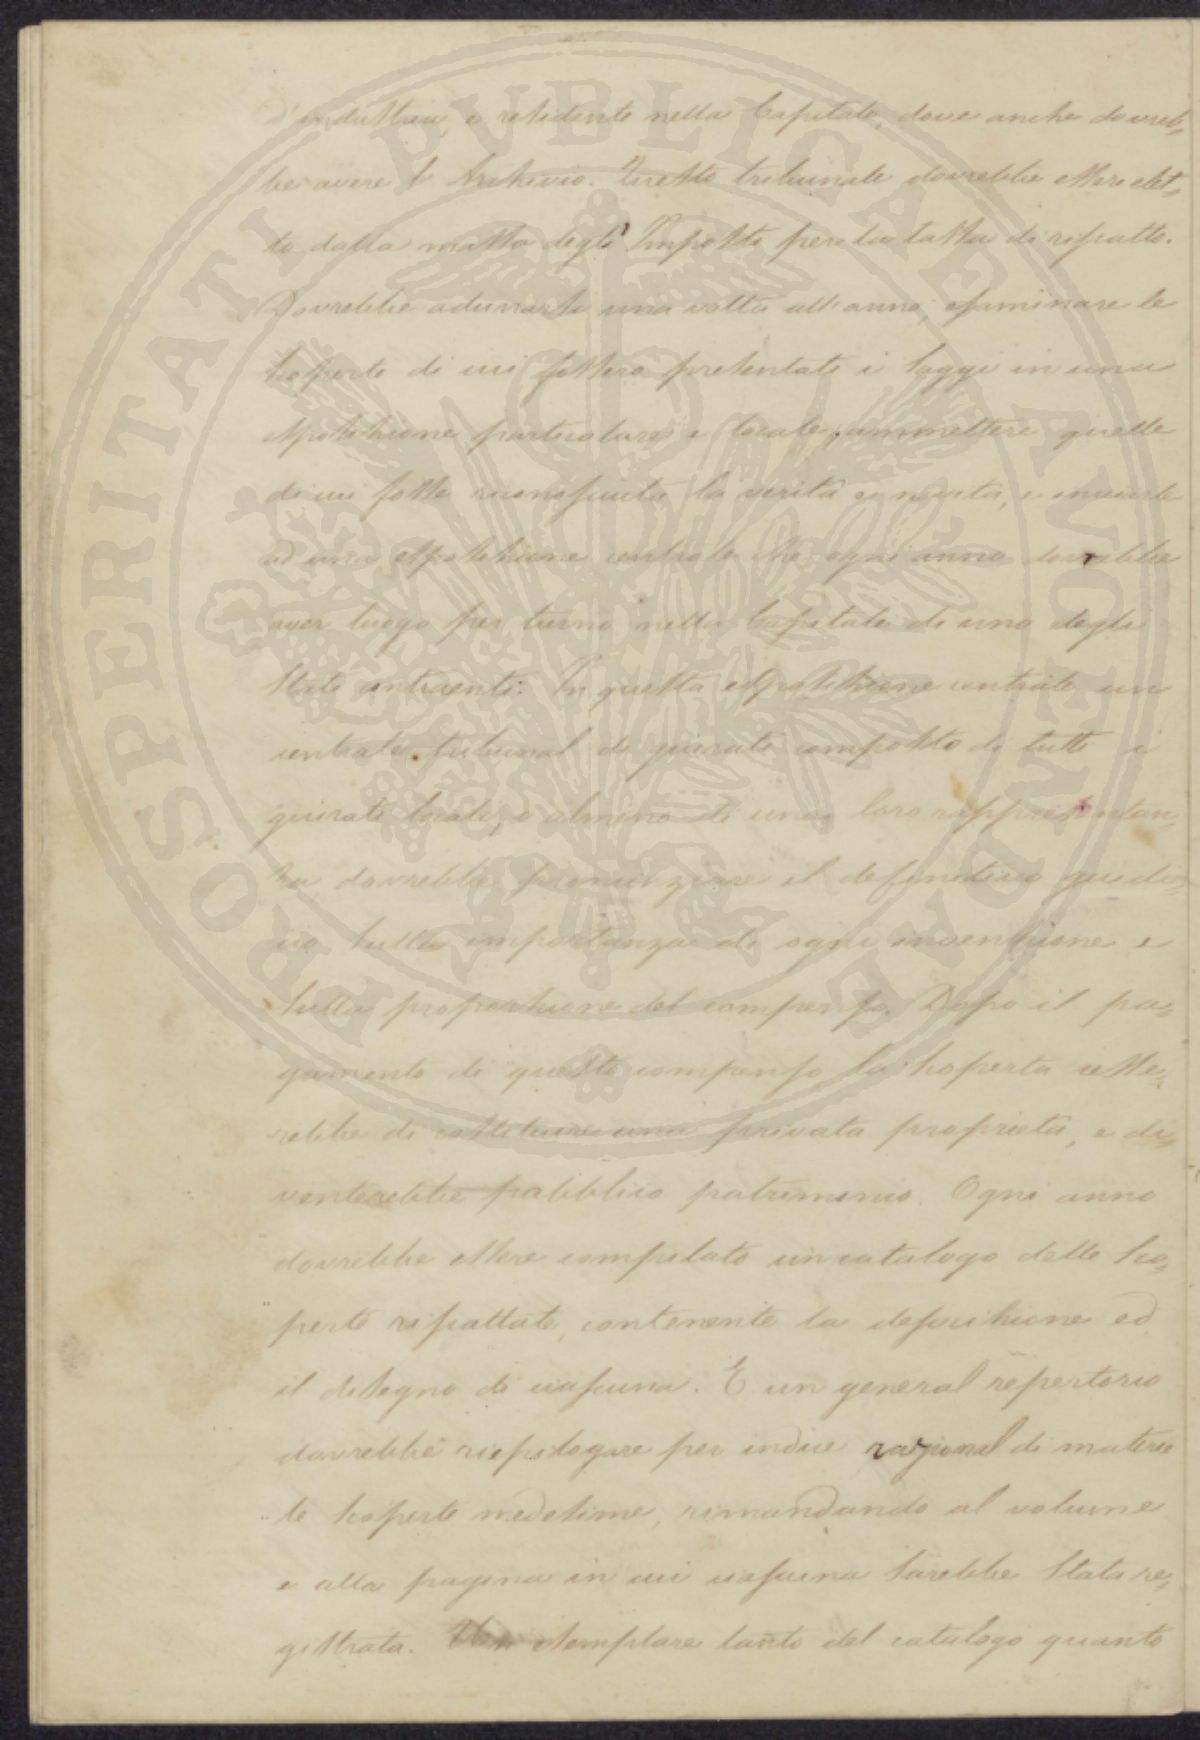 d'industria, e residente nella Capitale, dove anche dovreb-
be avere l'Archivio. Questo tribunale dovrebbe essere elet-
to dalla massa degli Imposti per la tassa di riscatto.
Dovrebbe adunarsi una volta all'anno, esaminare le
scoperte di cui fossero presentati i saggi in una
esposizione particolare e locale, ammettere quelle
di cui fosse riconosciuta la verità e novità, e inviarle
ad una esposizione centrale che ogni anno dovrebbe
aver luogo per turno nella Capitale di uno degli
Stati contraenti. In questa esposizione centrale un
centrale tribunal di giurati composto di tutti i
giurati locali, o almeno di una loro rappresentan-
za, dovrebbe pronunziare il definitivo giudi-
cio sulla importanza di ogni invenzione e
sulla proporzione del compenso. Dopo il pa-
gamento di questo compenso la scoperta cesse-
rebbe di costituire una privata proprietà, e di-
venterebbe pubblico patrimonio. Ogni anno
dovrebbe essere compilato un catalogo delle sco-
perte riscattate, contenente la descrizione ed
il disegno di ciascuna. E un general repertorio
dovrebbe riepilogare per indice razional di materie
le scoperte medesime, rimandando al volume
e alla pagina in cui ciascuna sarebbe stata re-
gistrata. Un esemplare tanto del catalogo quanto
PROSPERITATI PVBLICAE AVGENDAE